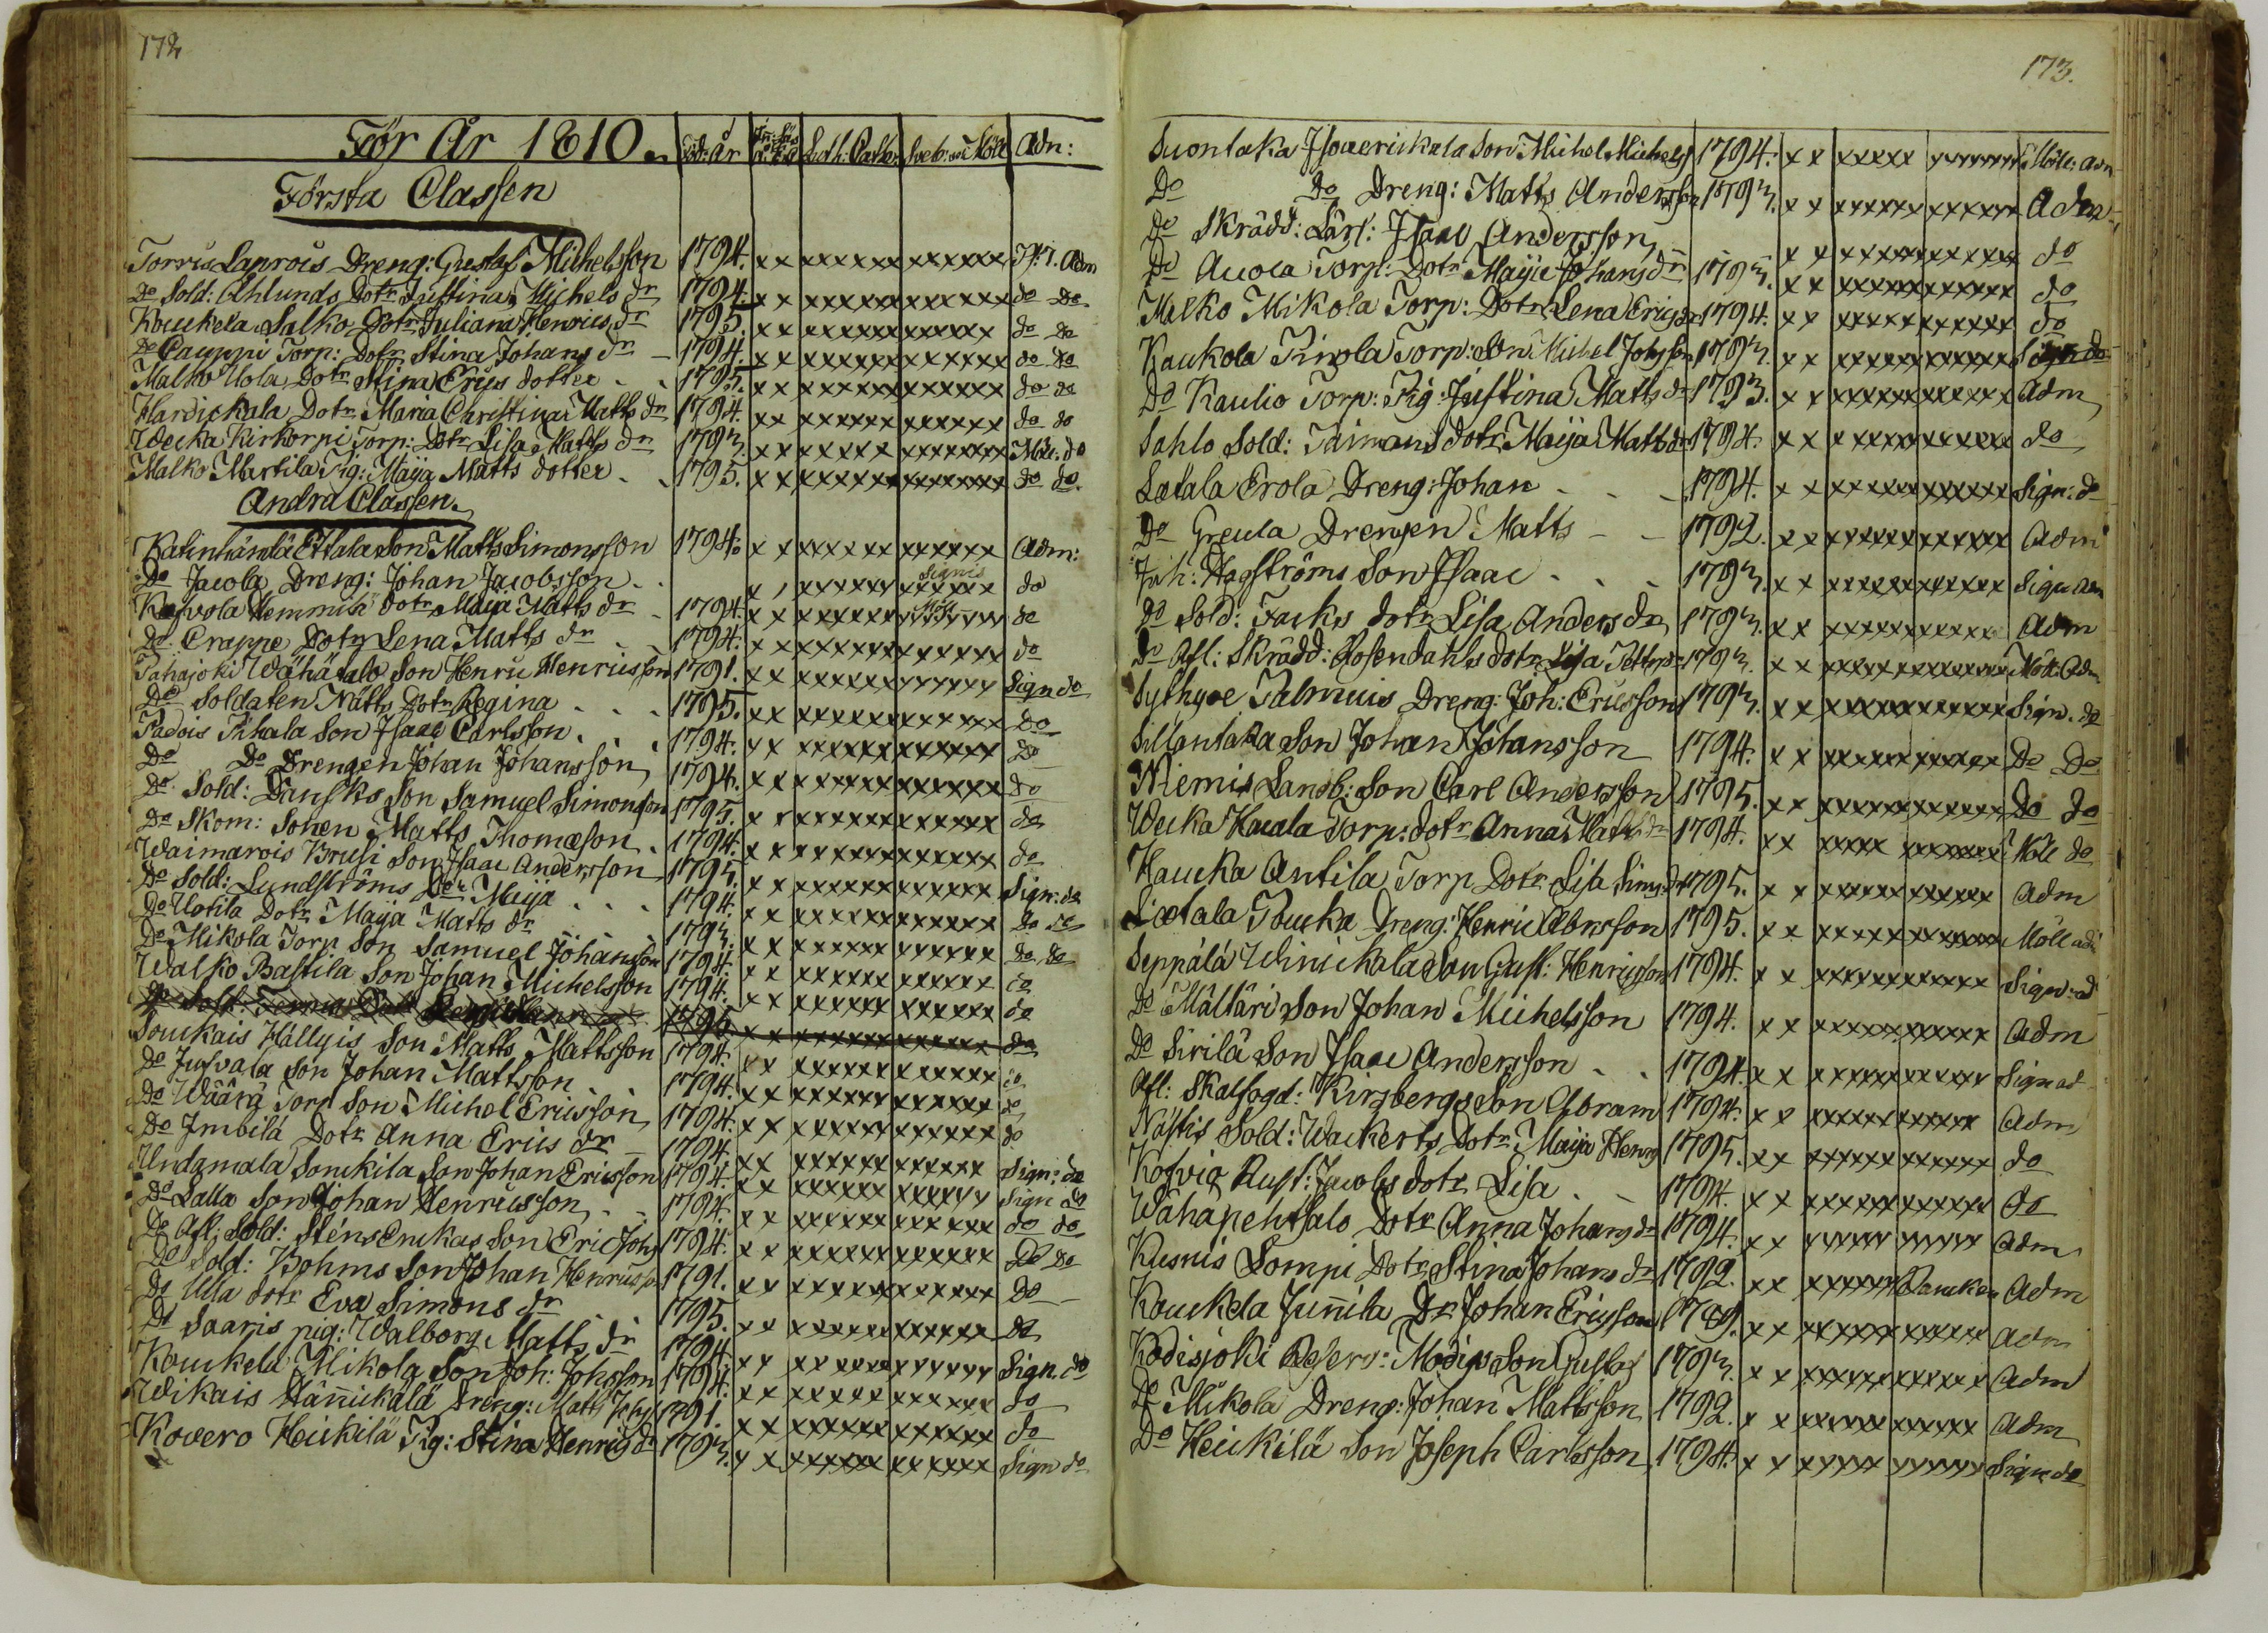 172
För År 1810. Föd: År Luth: Catk: Sveb: och Möll Adn:
Första Classen
Torris Laprois Dreng: Gustaf Michelsson 1794. xx xxxxxx xxxxxx Adm
Do Sold: Ahlunds Dotr Justina Michels dr 1794. xx xxxxxx xxxxxx do do
Koukela Salko Dotr Juliana Henrics dr 1795. xx xxxxxx xxxxxx do do
Do Cauppi Torp: Dotr Stina Johans dr – 1794. xx xxxxxx xxxxxx do do
Malko Uola Dotr Stina Erics dotter . . 1795. xx xxxxxx xxxxxx do do
Hardickala Dotr Maria Christina Matts dr 1794. xx xxxxxx xxxxxx do do
Wecka Kirkorpi Torp: Dotr Lisa Matts dr 1793. xx xxxxxx xxxxxx Möll: do
Malko Martila Pig: Maija Matts dotter . . 1795. xx xxxxxx xxxxxx do do.
Andra Classen.
Katinhändä Ettala Son Matts Simonsson 1794. xx xxxxxx xxxxxx Adm:
Do Jacola Dreng: Johan Jacobsson . . x, xxxxxx Signis xxxxxx do
Kåfvola Hemmilä dotr Maija Matts dr – 1794. xx xxxxxx Möll xxxxxx do
Do Erappe Dotr Lena Matts dr . . 1794. xx xxxxxx xxxxxx do
Pahajoki Wähätalo Son Henric Henricsson 1791. xx xxxxxx xxxxxx Sign do
Do Soldaten Nätts Dotr Regina . . . 1795. xx xxxxxx xxxxxx do
Padois Pihala Son Isaac Carlsson . . . 1794. xx xxxxxx xxxxxx do
Do Do Drengen Johan Johansson 1794. xx xxxxxx xxxxxx do
Do Sold: Dansks Son Samuel Simonsson 1795. xx xxxxxx xxxxxx do
Do Skom: Sonen Matts Thomæson . 1794. xx xxxxxx xxxxxx do
Waimarois Brusi Son Isaac Andersson 1795. xx xxxxxx xxxxxx Sign: do
Do Sold: Lundströms Dotr Maija . . . 1794. xx xxxxxx xxxxxx do do
Do Uotila Dotr Maija Matts dr 1793. xx xxxxxx xxxxxx do do
Do Mikola Torp Son Samuel Johansson 1794. xx xxxxxx xxxxxx do
Walko Bastila Son Johan Michelsson 1794. xx xxxxxx xxxxxx do
Do Sold: 1795 xx xxxxxx xxxxxx do
Soukais Hällyis Son Matts Mattsson 1794. xx xxxxxx xxxxxx do
Do Jufvala Son Johan Mattsson . . 1794. xx xxxxxx xxxxxx do
Do Wäärä Torp Son Michel Ericsson 1794. xx xxxxxx xxxxxx do
Do Imbilä Dotr Anna Erics dr – 1794. xx xxxxxx xxxxxx Sign: do
Undamala Souckila Son Johan Ericsson 1794. xx xxxxxx xxxxxx Sign do
Do Lalla Son Johan Henricsson . . 1794. xx xxxxxx xxxxxx do do
Do Afl: Sold: Sténs Enckas Son Eric Johs 1794. xx xxxxxx xxxxxx Do Do
Do Sold: Bohms Son Johan Henricss 1791. xx xxxxxx xxxxxx Do
Do Ulla dotr Eva Simons dr 1795. xx xxxxxx xxxxxx do
Do Saaris pig: Walborg Matts dr 1794. xx xxxxxx xxxxxx Sign. do
Kouckela Mikola Son Joh: Johsson 1794. xx xxxxxx xxxxxx do
Wikais Hänickälä Dreng: Matts Johs 1791. xx xxxxxx xxxxxx do
Kovero Heickilä Pig: Stina Henrics dr 1793. xx xxxxxx xxxxxx Sign do
173.
Suontaka Isoaerickala Son Michel Michels 1794. xx xxxxx xxxxxx Möll: Adn
Do Do Dreng: Matts Andersson 1793. xx xxxxxx xxxxxx Adm
Do Skrädd: Lärl: Isaac Andersson – xx xxxxxx xxxxxx do
Do Aucca Torp: Dotr Maija Johans dr 1793. xx xxxxxx xxxxxx do
Malko Mikola Torp: Dotr Lena Erics dr 1794. xx xxxxxx xxxxxx do
Kaukola Pirola Torp: Son Michel Johsson 1793. xx xxxxxx xxxxxx Sign do
Do Kaulio Torp: Pig: Justina Matts dr 1793. xx xxxxxx xxxxxx Adm
Sahlo Sold: Taimans dotr Maija Matts dr 1794. xx xxxxxx xxxxxx do
Lætala Erola Dreng: Johan . – – 1794. xx xxxxxx xxxxxx Sign: do
Do Greula Drengen Matts – – 1792. xx xxxxxx xxxxxx Adm
Inh: Hagströms Son Isaac . . . 1793. xx xxxxxx xxxxxx Sign Adm
Do Sold: Facks dotr Lisa Anders dr 1793. xx xxxxxx xxxxx Adm
Do Afl: Skrädd: Rosendahls dotr Lisa 1793. xx xxxxxx xxxxxx Möll: Adm
Sythyoe Palmuis Dreng: Joh: Ericsson 1793. xx xxxxxx xxxxxx Sign. do
Sillantaka Son Johan Johansson 1794. xx xxxxxx xxxxxx Do Do
Niemis Landb: Son Carl Andersson 1795. xx xxxxxx xxxxxx do do
Wecka Torp: dotr Anna Matts dr 1794. xx xxxx xxxxxx Möll do
Haucka Antila Torp Dotr Lisa Sims dr 1795. xx xxxxxx xxxxxx Adm
Lætala Poucka Dreng: Henric Abrsson 1795. xx xxxxx xxxxxx Möll ad
Seppälä Winickala Son Gust: Henricsson 1794. xx xxxxxx xxxxxx Sign: ad
Do Mälläri Son Johan Michelsson 1794. xx xxxxxx xxxxxx Adm
Do Sirilä Son Isaac Andersson . . 1794. xx xxxxxx xxxxxx Sign ad
Afl: Skalfogd: Kirsbergs Son Abram 1794. xx xxxxxx xxxxx Adm
Nästis Sold: Wackerts Dotr Maija Henrs 1795. xx xxxxxx xxxxxx do
Kofvis Rust: Jacobs dotr Lisa . – 1794. xx xxxxxx xxxxxx do
Wähäpehtsalo Dotr Anna Johans dr 1794. xx xxxxx xxxxx Adm
Kusnis Lompi Dotr Stina Johans dr 1792. xx xxxxxx Adm
Kouckela Junnila Dr Johan Ericsson xx xxxxxx xxxxx Adm
Kodisjoki Reserv: Modigs Son Gustaf 1793. xx xxxxxx xxxxxx Adm
Do Mikola Dreng: Johan Mattsson 1792. xx xxxxxx xxxxx Adm
Do Heickilä Son Joseph Carlsson 1794. xx xxxxx xxxxxx Sign do